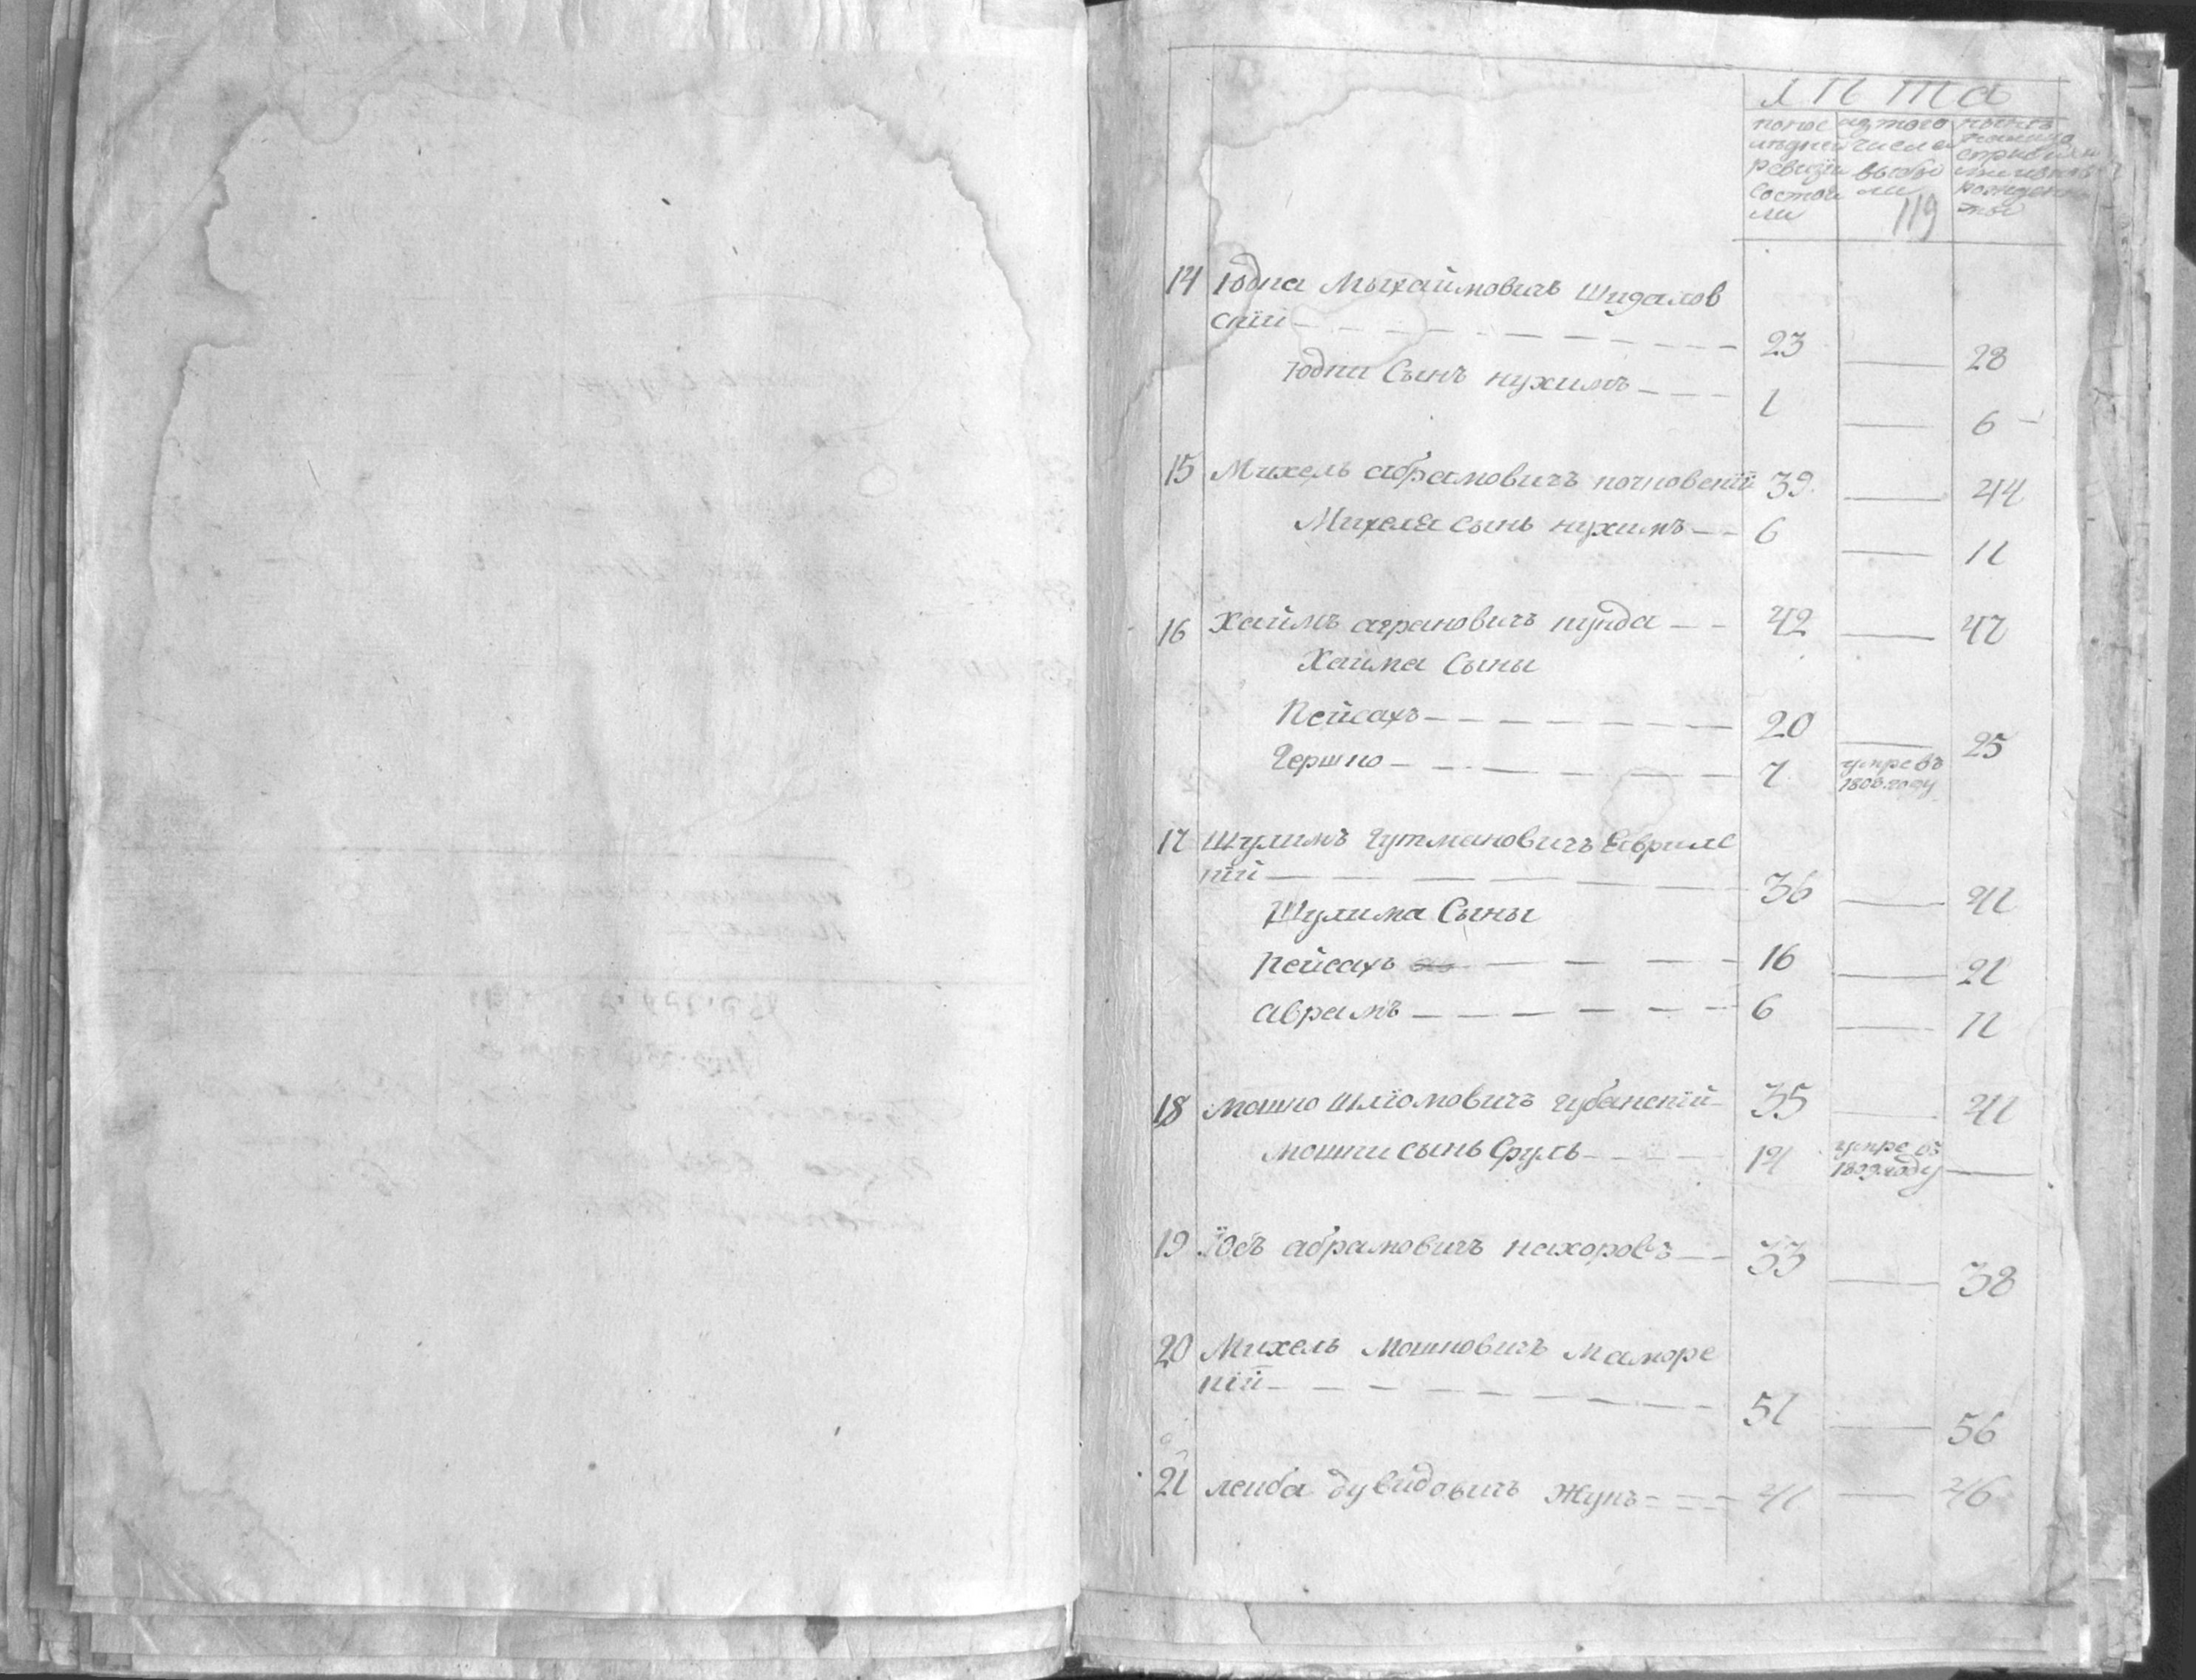 лѣта
попос из того нынѣ
лѣдней числа
ревизiи выбы
состоя ли
ли 119
14 Юдка Мыхаймовичъ Шидалов
скiй 23 — 28
Юдки Сынъ нухимъ 1 — 6
15 Михель абрамовичъ почновскiй 39 — 44
Михеля сынъ нухимъ 6 — 11
16 Хаймъ аграновичъ кунда 42 — 47
Хаима Сыны
Пейсахъ 20 — 25
Гершко 7 умре въ
1808 году
17 Шулимъ Гутмановичъ Гаврилс
кiй 36 — 41
Шулима Сыны
Пейсахъ 16 — 21
аврамъ 6 — 11
18 мошко шлiомовичъ губанскiй 35 — 41
мошки сынъ Сруль 14 умре въ —
1809 году
19 Юсъ абрамовичъ нахоровъ 33 — 38
20 Михель Мошковичъ Маморс
кiй 51 — 56
21 леиба дувидовичъ Жукъ 41 — 46